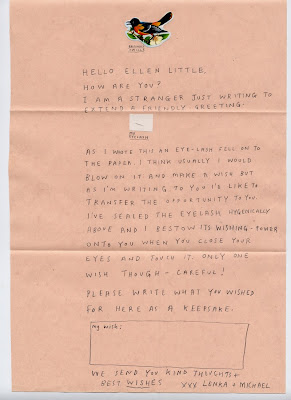 HELLO ELLEN LITTLE,
HOW ARE YOU?
I AM A STRANGER JUST WRITING TO
EXTEND A FRIENDLY GREETING.
MY
EYELASH
AS I WROTE THIS AN EYE-LASH FELL ON TO
THE PAPER I THINK USUALLY I WOULD
BLOW ON IT AND MAKE A WISH BUT
AS I'M WRITING TO YOU I'D LIKE TO
TRANSFER THE OPPORTUNITY TO YOU.
I'VE SEALED THE EYELASH HYGENICALLY
ABOVE AND I BESTOW ITS WISHING-POWER
ONTO YOU WHEN YOU CLOSE YOUR
EYES AND TOUCH IT. ONLY ONE
WISH THOUGH - CAREFUL!
PLEASE WRITE WHAT YOU WISHED
FOR HERE AS A KEEPSAKE.
my wish:
WE SEND YOU KIND THOUGHTS +
BEST WISHES XXX LENKA + MICHAEL